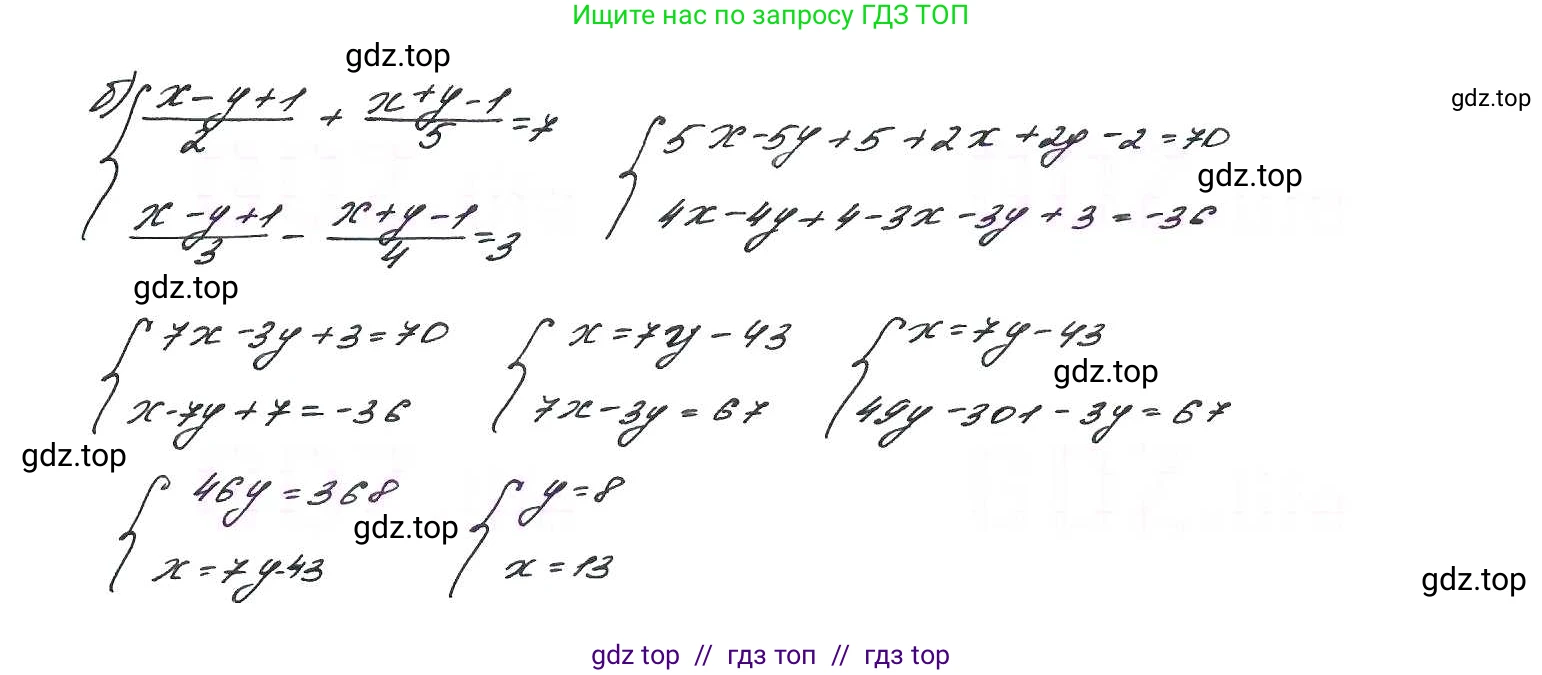 Ищите нас по запросу ГДЗ ТОП
gdz.top
б) { (x-y+1)/2 + (x+y-1)/5 = 7
(x-y+1)/3 - (x+y-1)/4 = 3
gdz.top
{ 5x-5y+5+2x+2y-2=70
gdz.top
4x-4y+4-3x-3y+3=-36
gdz.top
{ 7x-3y+3=70
x-7y+7=-36
{ x=7y-43
7x-3y=67
{ x=7y-43
gdz.top
49y-301-3y=67
gdz.top
{ 46y=368
x=7y-43
gdz.top
{ y=8
x=13
gdz.top
gdz top // гдз топ // гдз top